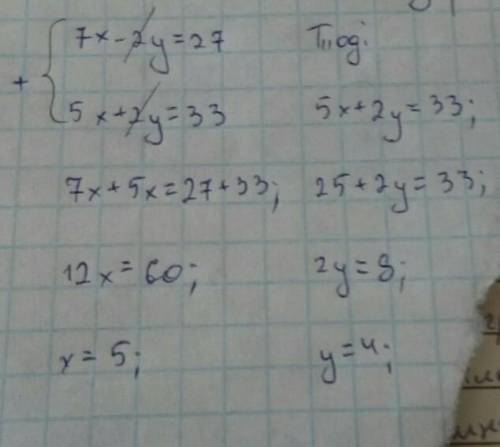 + { 7x-2y=27
5x+2y=33
7x+5x=27+33;
12x=60;
x=5;
Тоді:
5x+2y=33;
25+2y=33;
2y=8;
y=4;